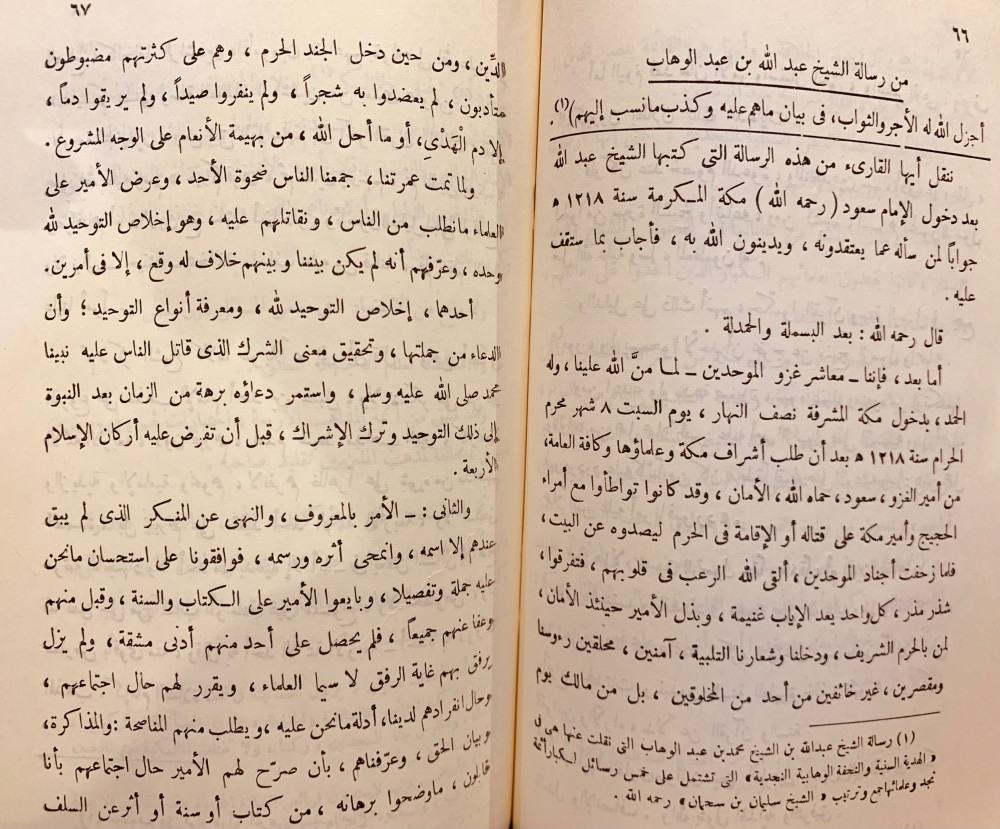 ٦٦
من رسالة الشيخ عبد الله بن عبد الوهاب
أجزل الله له الأجر والثواب، فى بيان ماهم عليه وكذب مانسب إليهم (١) .
ننقل أيها القارىء من هذه الرسالة التى كتبها الشيخ عبد الله
بعد دخول الإمام سعود ( رحمه الله ) مكة المكرمة سنة ١٢١٨ ه
جواباً لمن سأله عما يعتقدونه ، ويدينون الله به ، فأجاب بما ستقف
عليه .
قال رحمه الله : بعد البسملة والحمدلة .
أما بعد ، فإننا ــ معاشر غزو الموحدين ــ لما منَّ الله علينا ، وله
الحمد ، بدخول مكة المشرفة نصف النهار ، يوم السبت ٨ شهر محرم
الحرام سنة ١٢١٨ ه بعد أن طلب أشراف مكة وعلماؤها وكافة العامة،
من أمير الغزو ، سعود ، حماه الله ، الأمان ، وقد كانوا تواطأوا مع أمراء
الحجيج وأمير مكة على قتاله أو الإقامة فى الحرم ليصدوه عن البيت ،
فلما زحفت أجناد الموحدين ، ألقى الله الرعب فى قلوبهم ، فتفرقوا ،
شذر مذر ، كل واحد يعد الإياب غنيمة ، وبذل الأمير حينئذ الأمان ،
لمن بالحرم الشريف ، ودخلنا وشعارنا التلبية ، آمنين ، محلقين رءوسنا
ومقصرين ، غير خائفين من أحد من المخلوقين ، بل من مالك يوم
(١) رسالة الشيخ عبدالله بن الشيخ محمد بن عبد الوهاب التى نقلت عنها هى فى
« الهدية السنية والتحفة الوهابية النجدية » التى تشتمل على خمس رسائل لكبار أئمة
نجد وعلمائها جمع وترتيب « الشيخ سليمان بن سحمان » رحمه الله .
٦٧
الدِّين ، ومن حين دخل الجند الحرم ، وهم على كثرتهم مضبوطون
متأدبون ، لم يعضدوا به شجراً ، ولم ينفروا صيداً ، ولم يريقوا دماً ،
إلا دم الْهَدْيِ، أو ما أحل الله ، من بهيمة الأنعام على الوجه المشروع .
ولما تمت عمرتنا ، جمعنا الناس ضحوة الأحد ، وعرض الأمير على
العلماء مانطلب من الناس ، ونقاتلهم عليه ، وهو إخلاص التوحيد لله
وحده ، وعرّفهم أنه لم يكن بيننا وبينهم خلاف له وقع ، إلا فى أمرين .
أحدهما ، إخلاص التوحيد لله ، ومعرفة أنواع التوحيد ؛ وأن
الدعاء من جملتها ، وتحقيق معنى الشرك الذى قاتل الناس عليه نبينا
محمد صلى الله عليه وسلم ، واستمر دعاؤه برهة من الزمان بعد النبوة
إلى ذلك التوحيد وترك الإشراك ، قبل أن تفرض عليه أركان الإسلام
الأربعة .
والثانى : ــ الأمر بالمعروف ، والنهى عن المنكر الذى لم يبق
عندهم إلا اسمه ، وانمحى أثره ورسمه ، فوافقونا على استحسان مانحن
عليه جملة وتفصيلا ، وبايعوا الأمير على الكتاب والسنة ، وقبل منهم
وعفا عنهم جميعاً ، فلم يحصل على أحد منهم أدنى مشقة ، ولم يزل
يرفق بهم غاية الرفق لا سيما العلماء ، ويقرر لهم حال اجتماعهم ،
وحال انفرادهم لدينا، أدلة مانحن عليه ، ويطلب منهم المناصحة : والمذاكرة،
وبيان الحق ، وعرّفناهم ، بأن صرّح لهم الأمير حال اجتماعهم بأنا
قابلون ، ماوضحوا برهانه ، من كتاب أو سنة أو أثر عن السلف